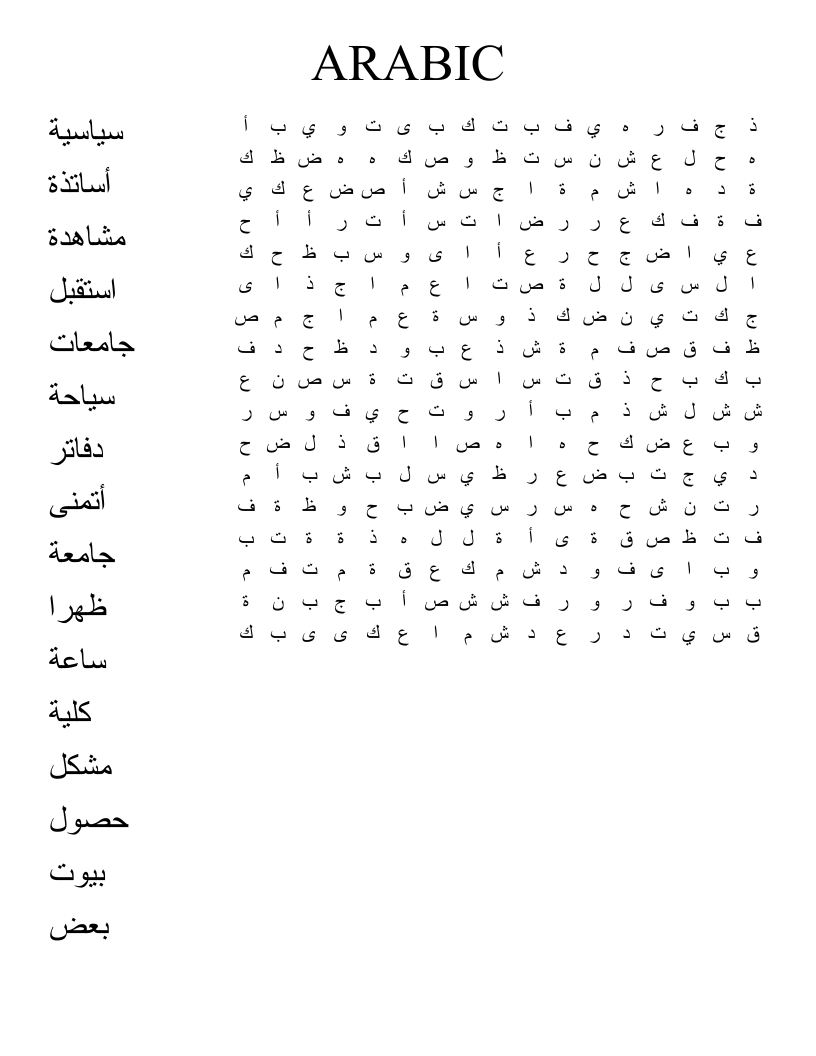 ARABIC
سياسية
أساتذة
مشاهدة
استقبل
جامعات
سياحة
دفاتر
أتمنى
جامعة
ظهرا
ساعة
كلية
مشكل
حصول
بيوت
بعض
ذ ج ف ر ه ي ف ب ت ك ب ى ت و ي ب أ
ه ح ل ع ش ن س ت ظ و ص ك ه ه ض ظ ك
ة د ه ا ش م ة ا ج س ش أ ص ض ع ك ي
ف ة ف ك ع ر ر ض ا ت س أ ت ر أ أ ح
ع ي ا ض ج ح ر ع أ ا ى و س ب ظ ح ك
ا ل س ى ل ل ة ص ت ا ع م ا ج ذ ا ى
ج ك ت ي ن ض ك ذ و س ة ع م ا ج م ص
ظ ف ق ص ف م ة ش ذ ع ب و د ظ ح د ف
ب ك ب ح ذ ق ت س ا س ق ت ة س ص ن ع
ش ش ل ش ذ م ب أ ر و ت ح ي ف و س ر
و ب ع ض ك ح ه ا ه ص ا ا ق ذ ل ض ح
د ي ج ت ب ض ع ر ظ ي س ل ب ش ب أ م
ر ت ن ش ح ه س ر س ي ض ب ح و ظ ة ف
ف ت ظ ص ق ة ى أ ة ل ل ه ذ ة ة ت ب
و ب ا ى ف و د ش م ك ع ق ة م ت ف م
ب ب و ف ر و ر ف ش ش ص أ ب ج ب ن ة
ق س ي ت د ر ع د ش م ا ع ك ى ى ب ك